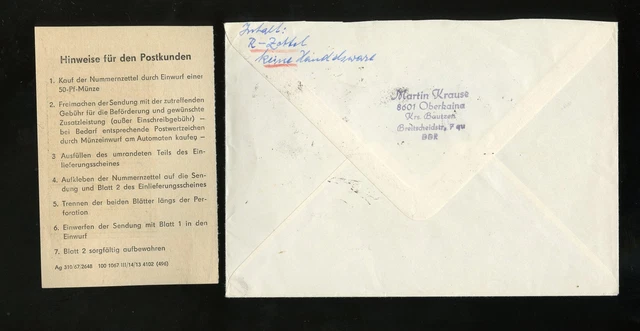 Hinweise für den Postkunden
1. Kauf der Nummernzettel durch Einwurf einer
50-Pf-Münze
2. Freimachen der Sendung mit der zutreffenden
Gebühr für die Beförderung und gewünschte
Zusatzleistung (außer Einschreibgebühr) —
bei Bedarf entsprechende Postwertzeichen
durch Münzeinwurf am Automaten kaufen —
3 Ausfüllen des umrandeten Teils des Ein-
lieferungsscheines
4. Aufkleben der Nummernzettel auf die Sen-
dung und Blatt 2 des Einlieferungsscheines
5. Trennen der beiden Blätter längs der Per-
foration
6. Einwerfen der Sendung mit Blatt 1 in den
Einwurf
7. Blatt 2 sorgfältig aufbewahren
Ag 310/67/2648 100 1067 III/14/13 4102 (496)
Inhalt:
R-Zettel
keine Handelsware
Martin Krause
8601 Oberkaina
Krs. Bautzen
Breitscheidstr. 7
DDR